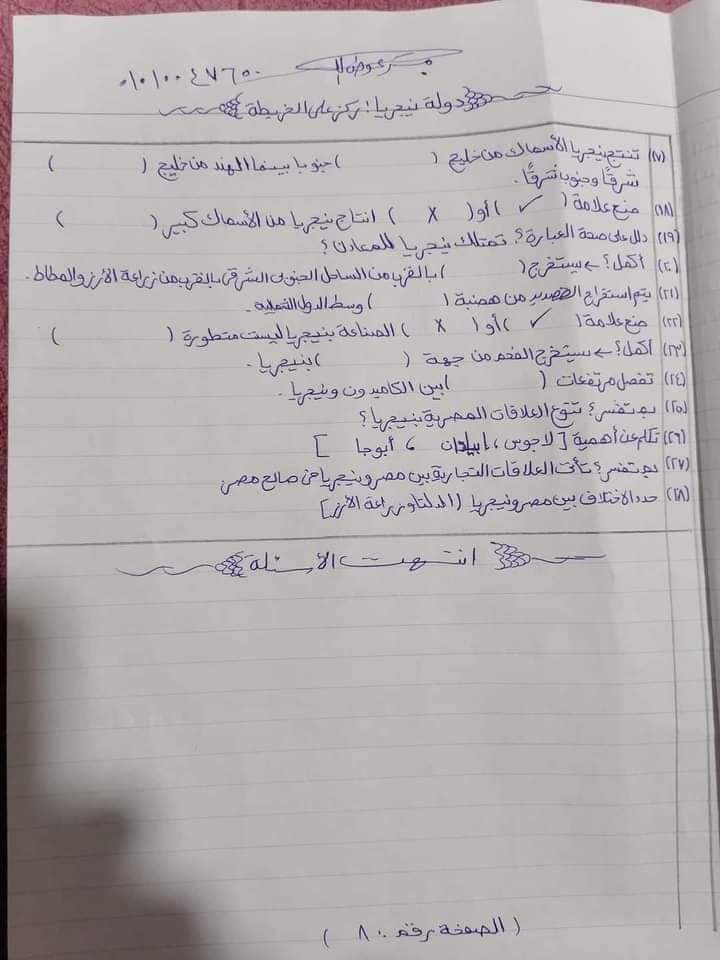 ٠١٠١٠٠٤٧٦٥٠
دولة نيجريا؛ ركز على الخريطة
(١٧) تنتج نيجريا الأسماك من خليج ( ) جنوبا بينما الهند من خليج ( )
شرقًا وجنوب شرقًا.
(١٨) ضع علامة ( ✓ ) أو ( X ) انتاج نيجريا من الأسماك كبير ( )
(١٩) دلل على صحة العبارة؟ تمتلك نيجريا للمعادن؟
(٢٠) أكمل؟ ← يستخرج ( ) بالقرب من الساحل الجنوبى الشرقى بالقرب من زراعة الأرز والمطاط.
(٢١) يتم استخراج القصدير من هضبة ( ) وسط الدول الشمالية.
(٢٢) ضع علامة ( ✓ ) أو ( X ) الصناعة بنيجريا ليست متطورة ( )
(٢٣) أكمل؟ ← يستخرج الفحم من جهة ( ) بنيجريا.
(٢٤) تفصل مرتفعات ( ) بين الكاميرون ونيجريا.
(٢٥) بم تفسر؟ تنوع العلاقات المصرية بنيجريا؟
(٢٦) تكلم عن أهمية [ لاجوس ، ابيادان ، أبوجا ]
(٢٧) بم تفسر؟ تأتى العلاقات التجارية بين مصر ونيجريا فى صالح مصر
(٢٨) حدد الاختلاف بين مصر ونيجريا (الدلتا وزراعة الأرز]
انتهت الأسئلة
( الصفحة رقم ٨٠ )